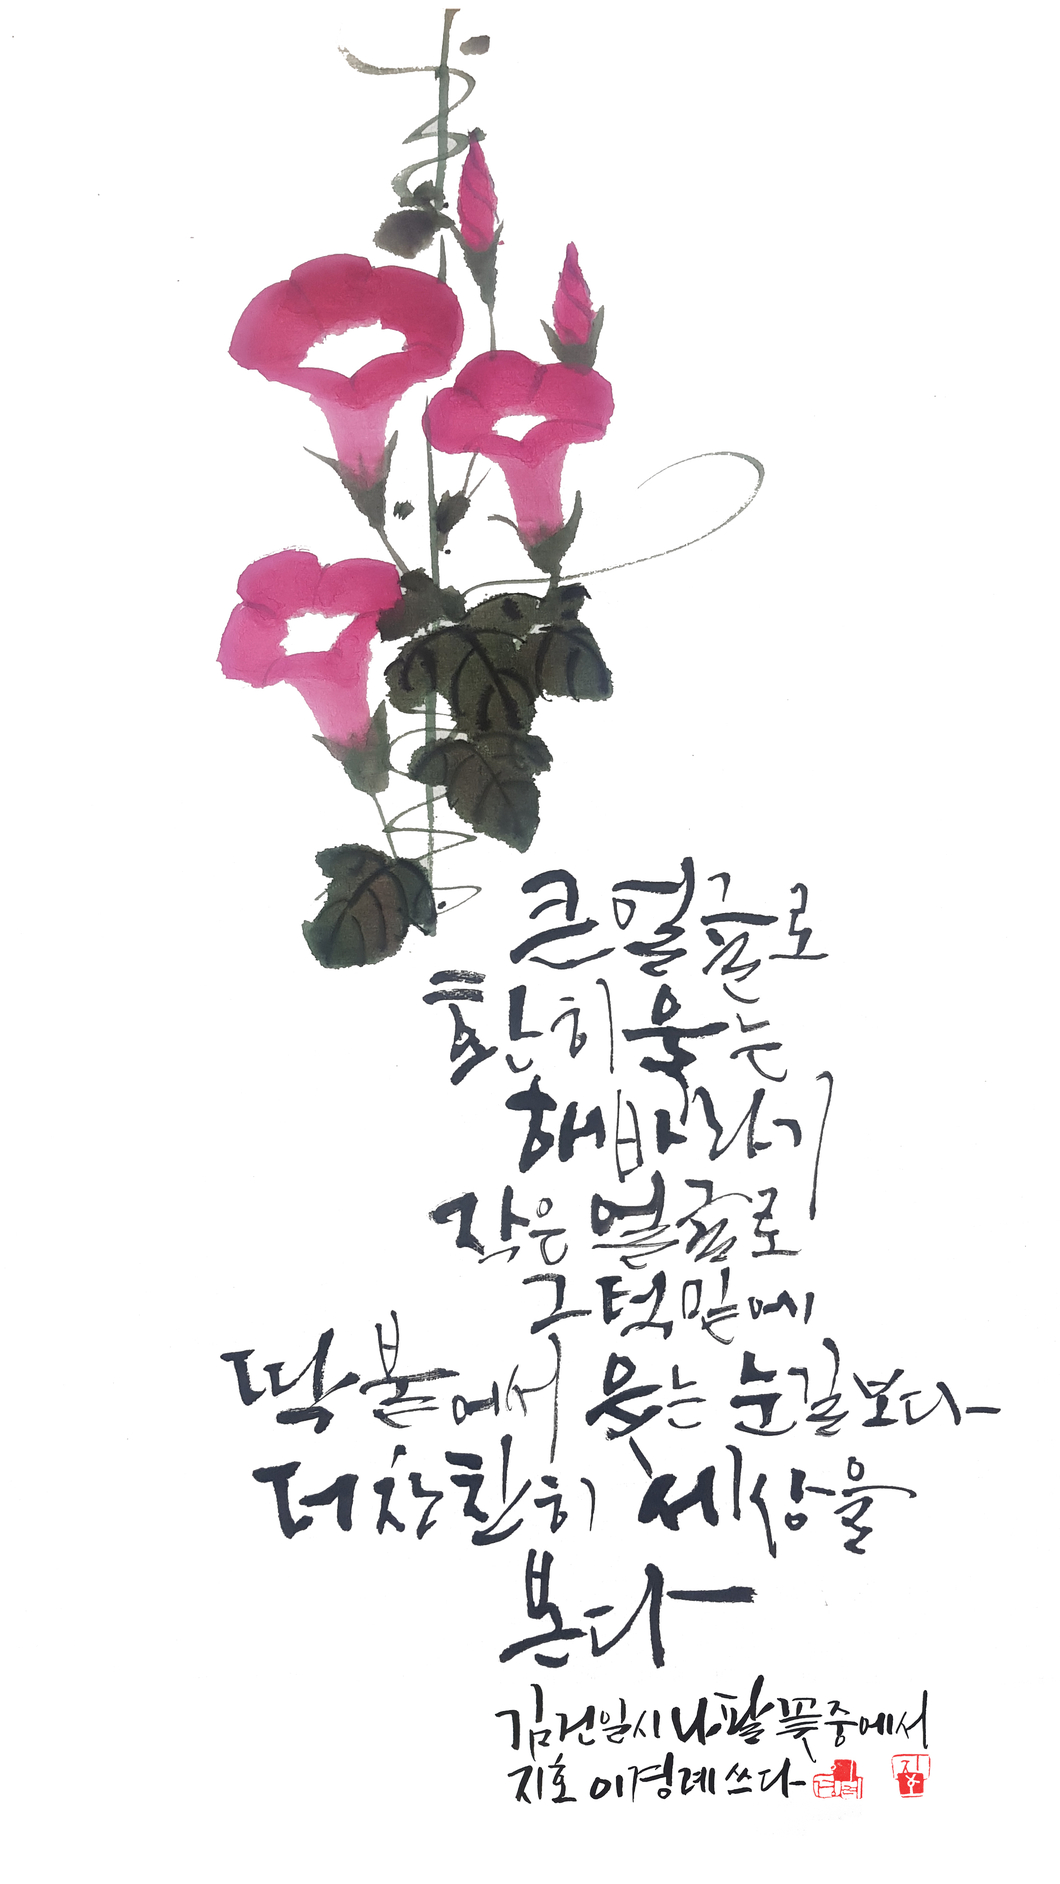 큰 얼굴로
환히 웃는
해바라기
작은 얼굴로
그 턱밑에
딱 붙에서 웃는 눈길보다
더 찬찬히 세상을
본다
김건일 시 나팔꽃 중에서
지호 이경례 쓰다